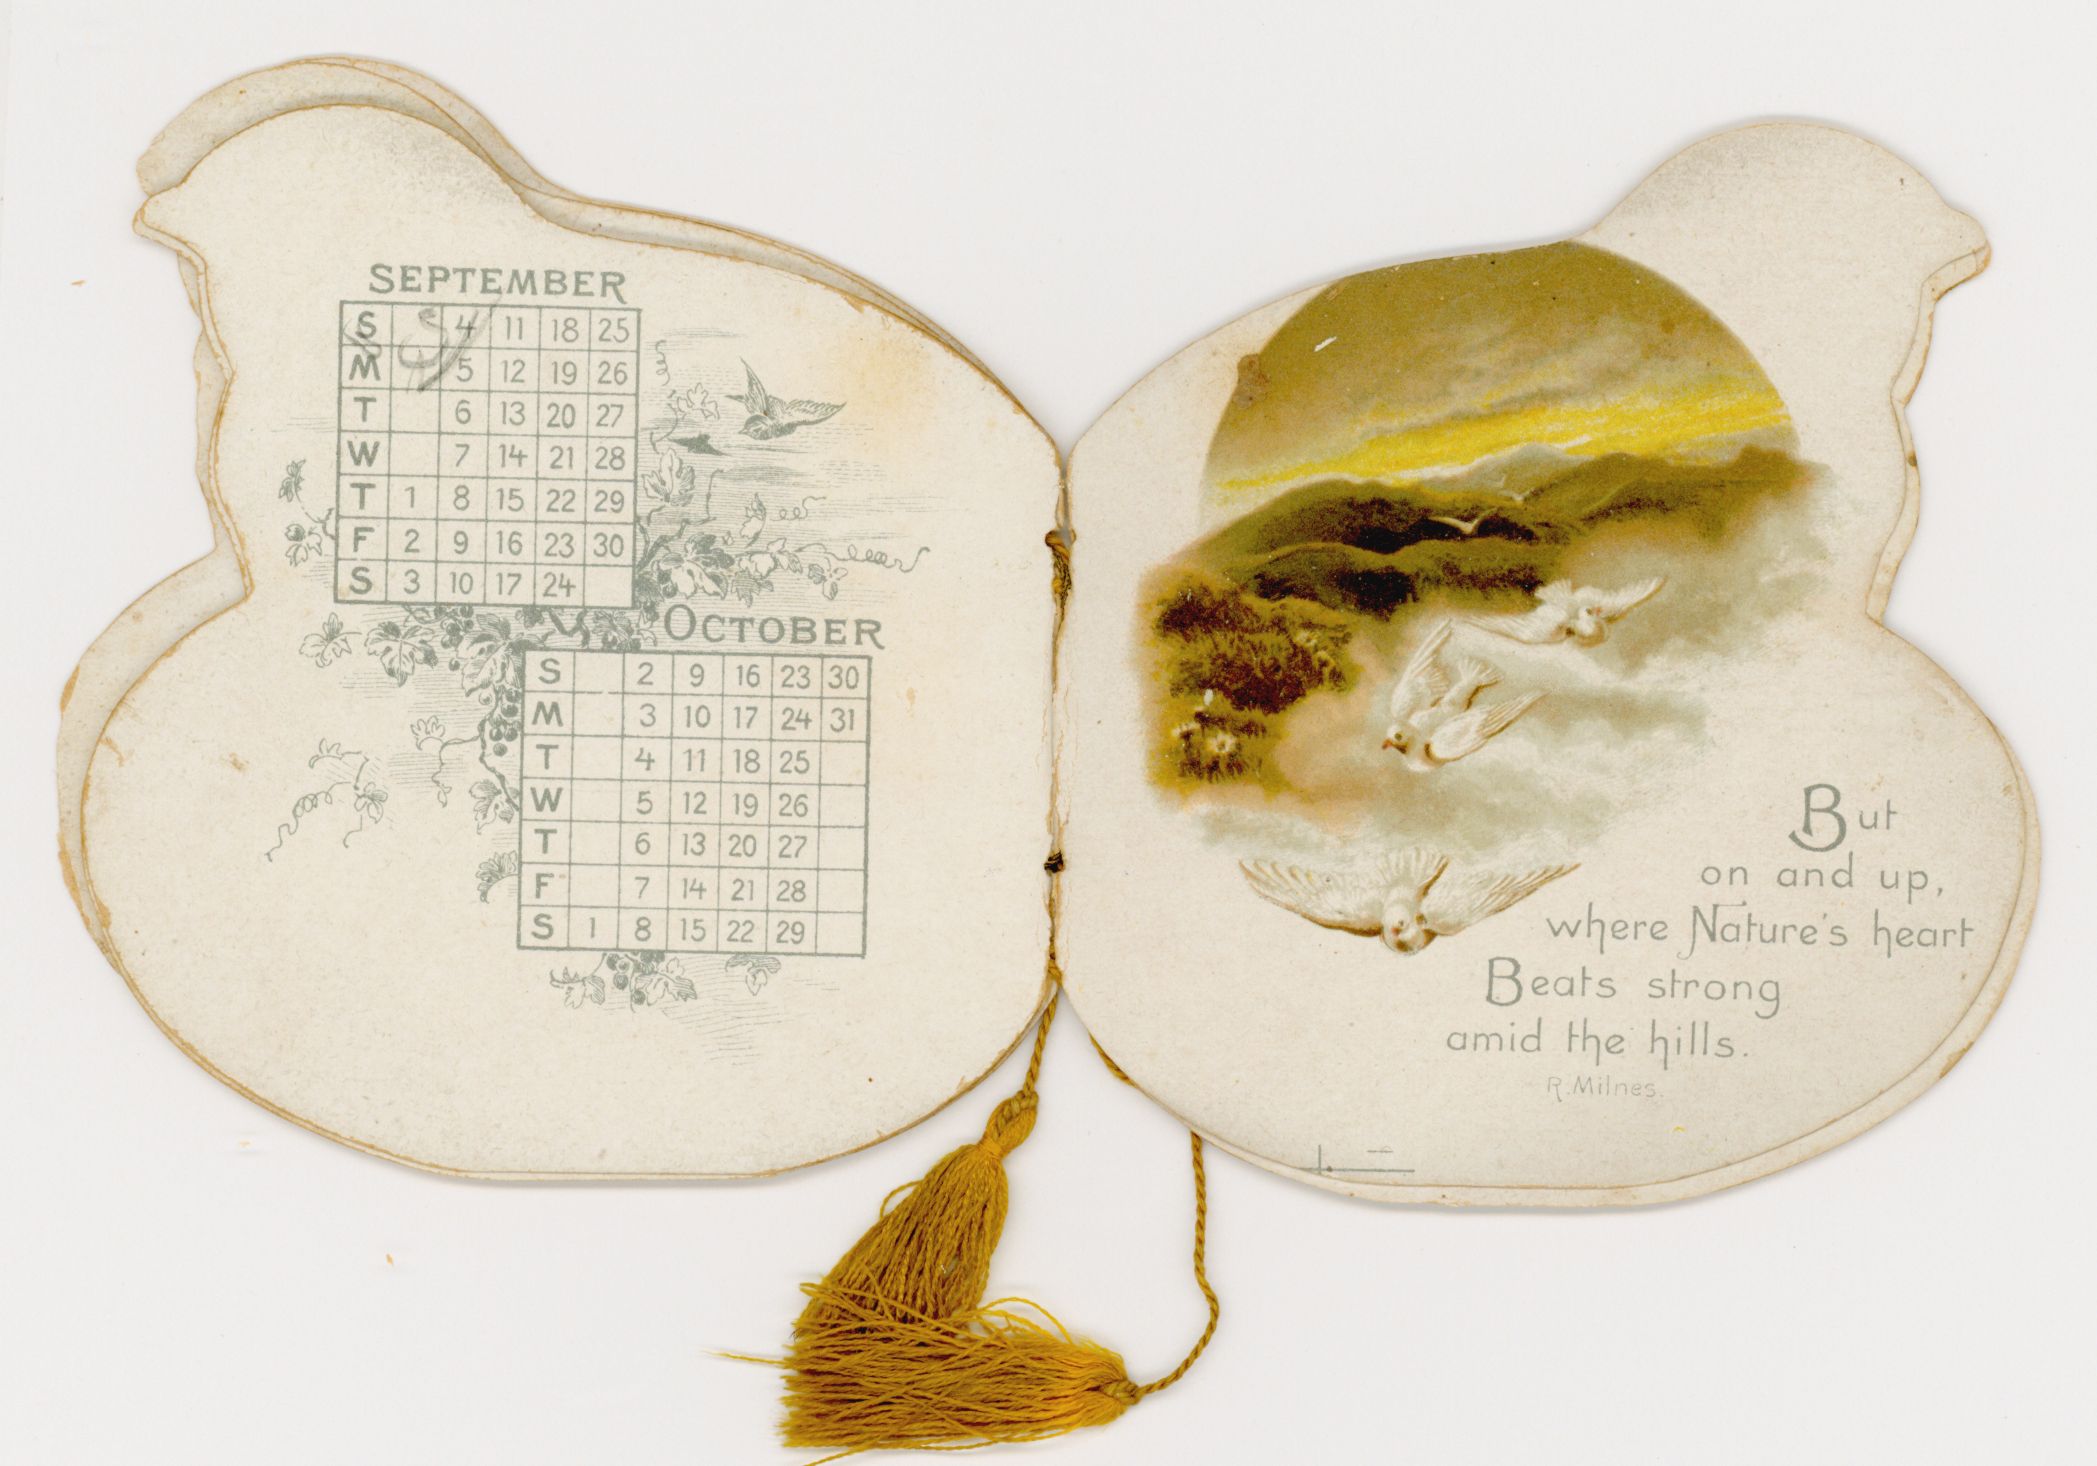 SEPTEMBER
S 4 11 18 25
M 5 12 19 26
T 6 13 20 27
W 7 14 21 28
T 1 8 15 22 29
F 2 9 16 23 30
S 3 10 17 24
OCTOBER
S 2 9 16 23 30
M 3 10 17 24 31
T 4 11 18 25
W 5 12 19 26
T 6 13 20 27
F 7 14 21 28
S 1 8 15 22 29
But
on and up,
where Nature's heart
Beats strong
amid the hills.
R. Milnes.